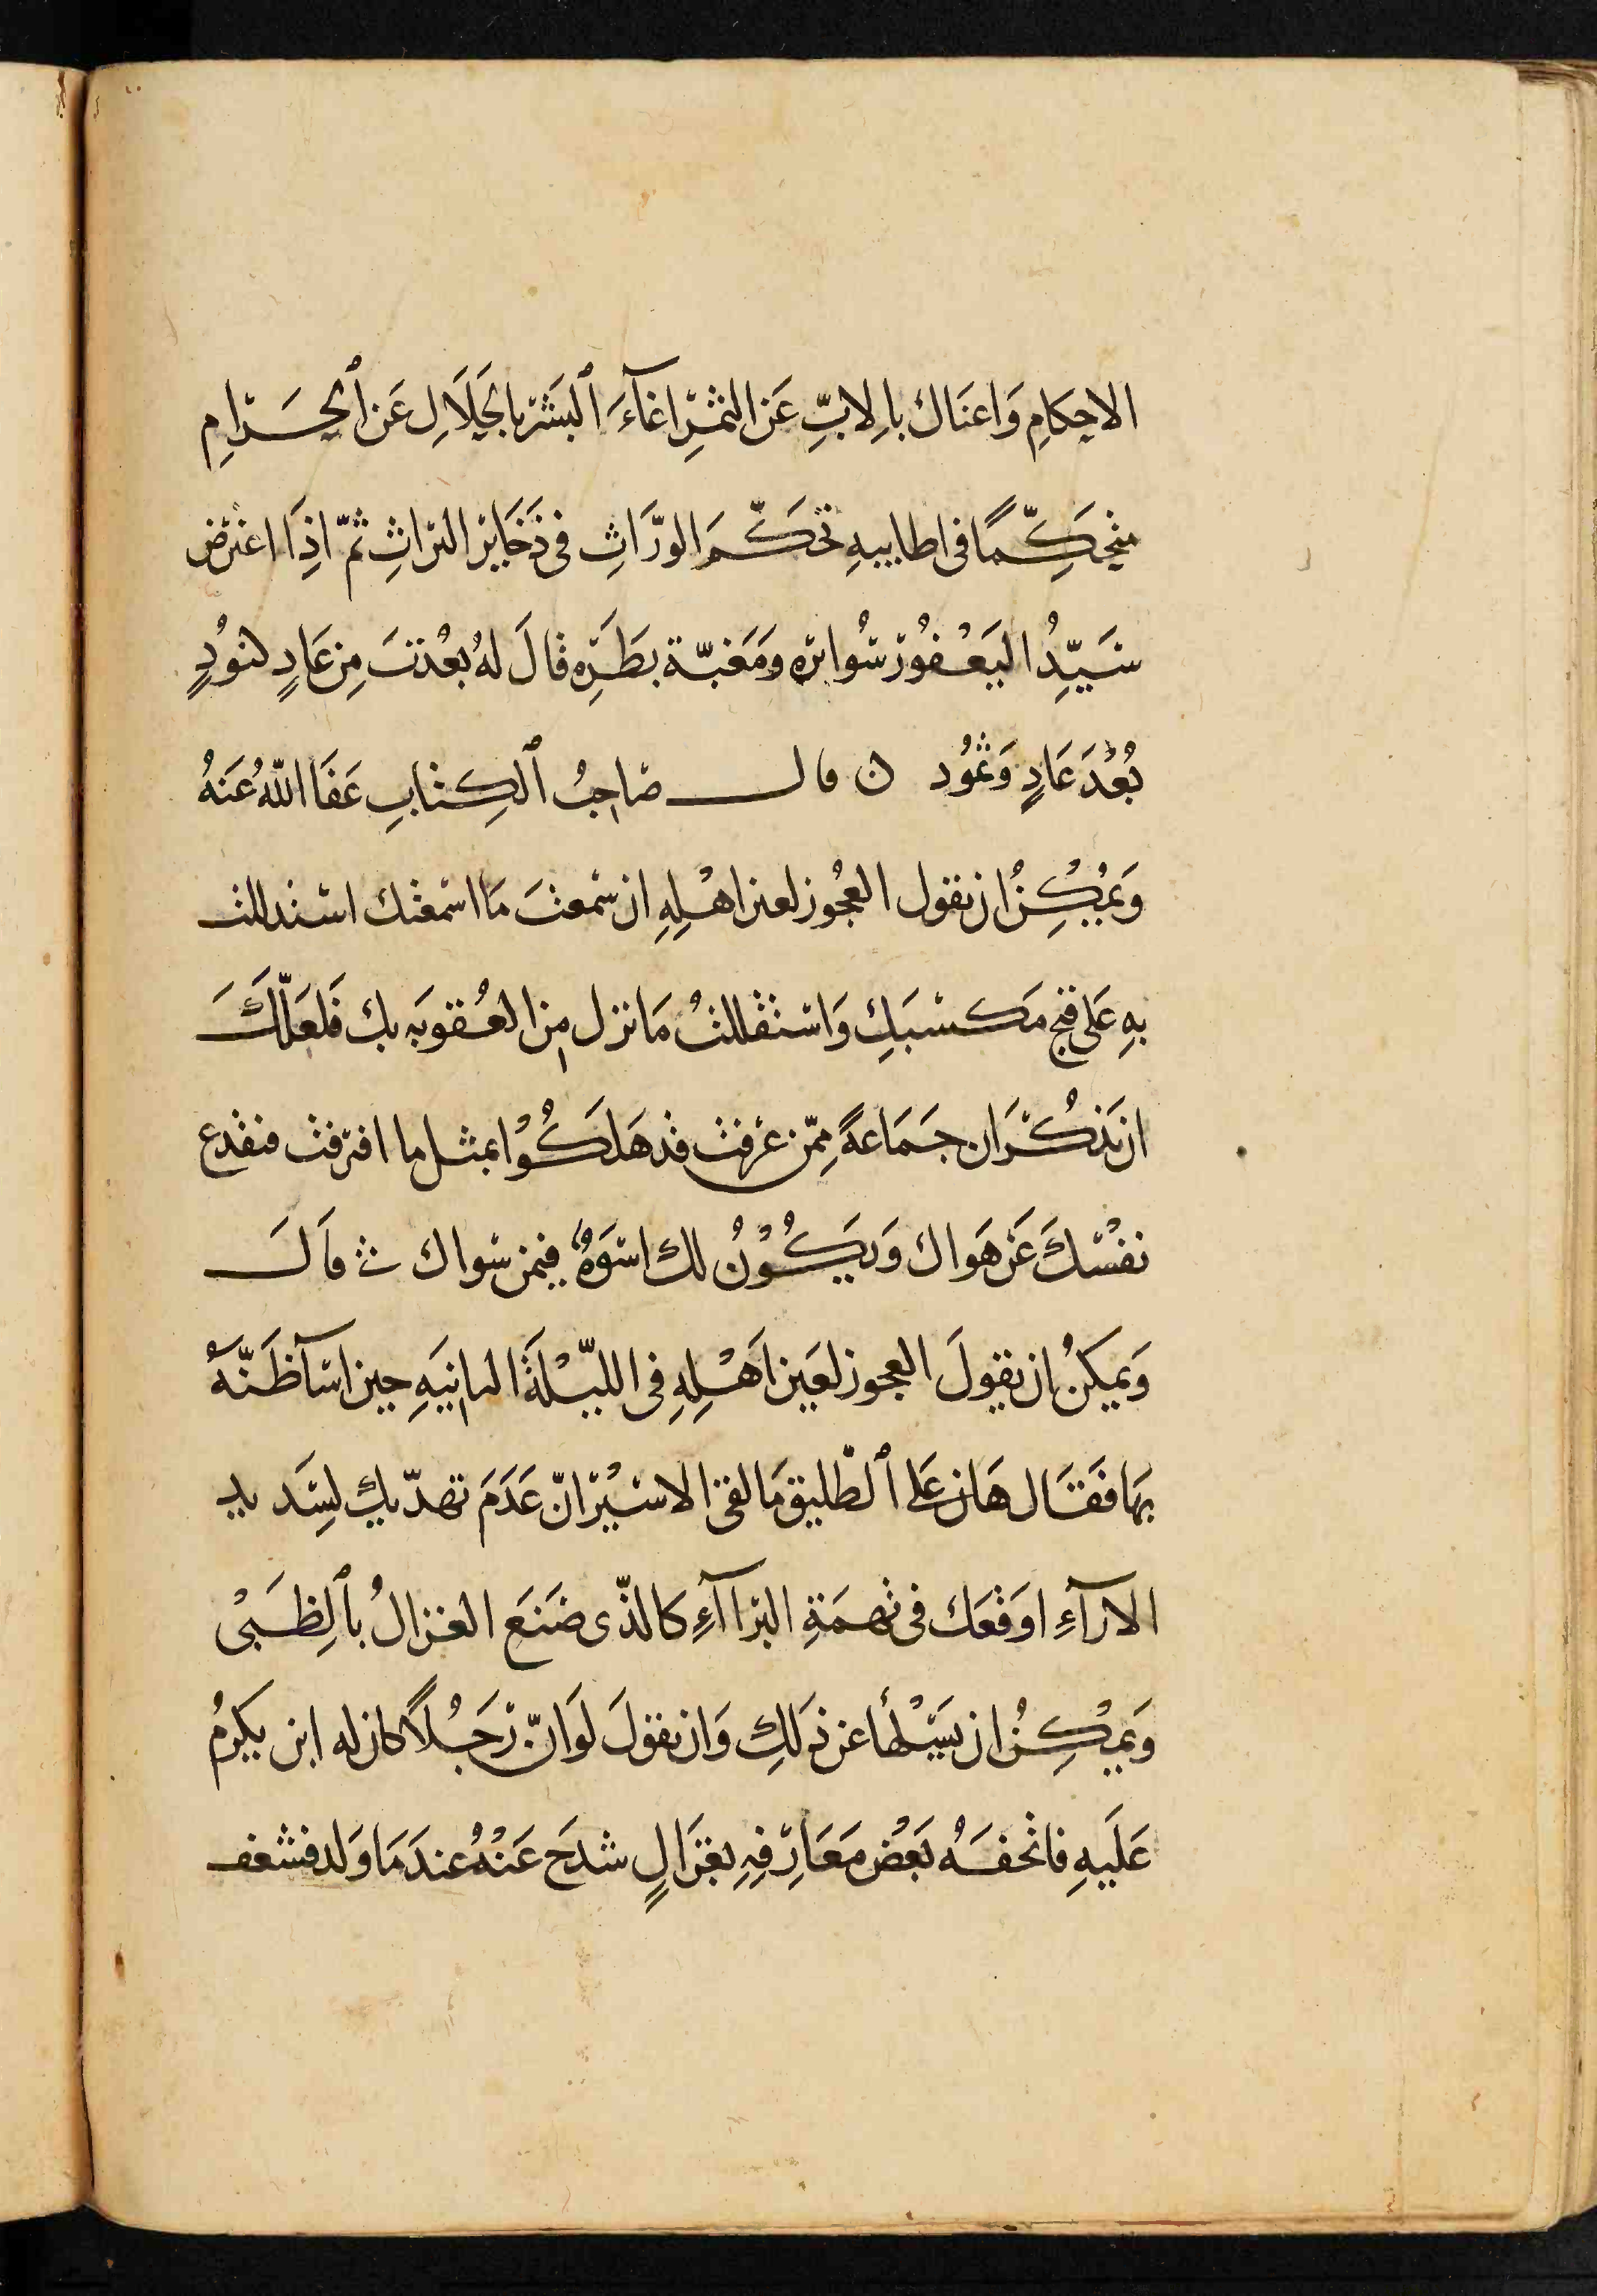 الاحكامِ وَاعنَاك بالابِّ عَن الثمرِ اغآءَ البَشَر بالحَلَالِ عَن الحَرامِ
متحكِّمًا فى اطايبهِ تحكّم الورَّاثِ فى ذَخَاير التراثِ ثمّ اذَا اعترض
سَيّدُ اليَعْفُور سُواره وَمَغبّة بطَره قالَ لهُ بعُدتَ مِن عَادٍ لنوُدٍ
بُعْدَ عَادٍ وَثمُود ن قال صَاحبُ الكِتابِ عَفَا اللهُ عَنهُ
وَيمْكِنُ ان تقول العجُوز لعين اهْلِهِ ان سْمعتَ مَا اسمعتك استدللت
بهِ عَلى قبح مَكسَبَكِ وَاستقللتُ مَا نزل من العُقوبَه بك فَلعَلّكَ
ان تذكُرَ ان جَمَاعةً مِمّن عرفت قد هَلَكُوْا بمثل ما اقترفت فتقدع
نفسْكَ عَن هَواك وَيَكُوْنُ لك اسْوَةٌ فيمن سواك ث قالَ
وَيمكنُ ان تقولَ العجوز لعَين اَهْلِهِ فى الليّلَة الثانيَهِ حين اسآ ظَنّهُ
بهَا فَقَال هَان عَلى الطّليق مَا لقى الاسْيرْ انّ عَدَمَ تهدّيك لسَديد
الارآءِ اوقعَك فى تهمَةِ البراآءِ كالذّى صَنَعَ الغزالُ بالِظبَىْ
وَيمْكِنُ ان يسَئْلهَا عن ذَلكِ وَان تقولَ لوَ انّ رَجُلًا كان له ابن يكرمُ
عَلَيهِ فاتحفَهُ بَعْض مَعَارِفِهِ بغزَالٍ شدَحَ عَنْهُ عندَمَا وَلد فشغف